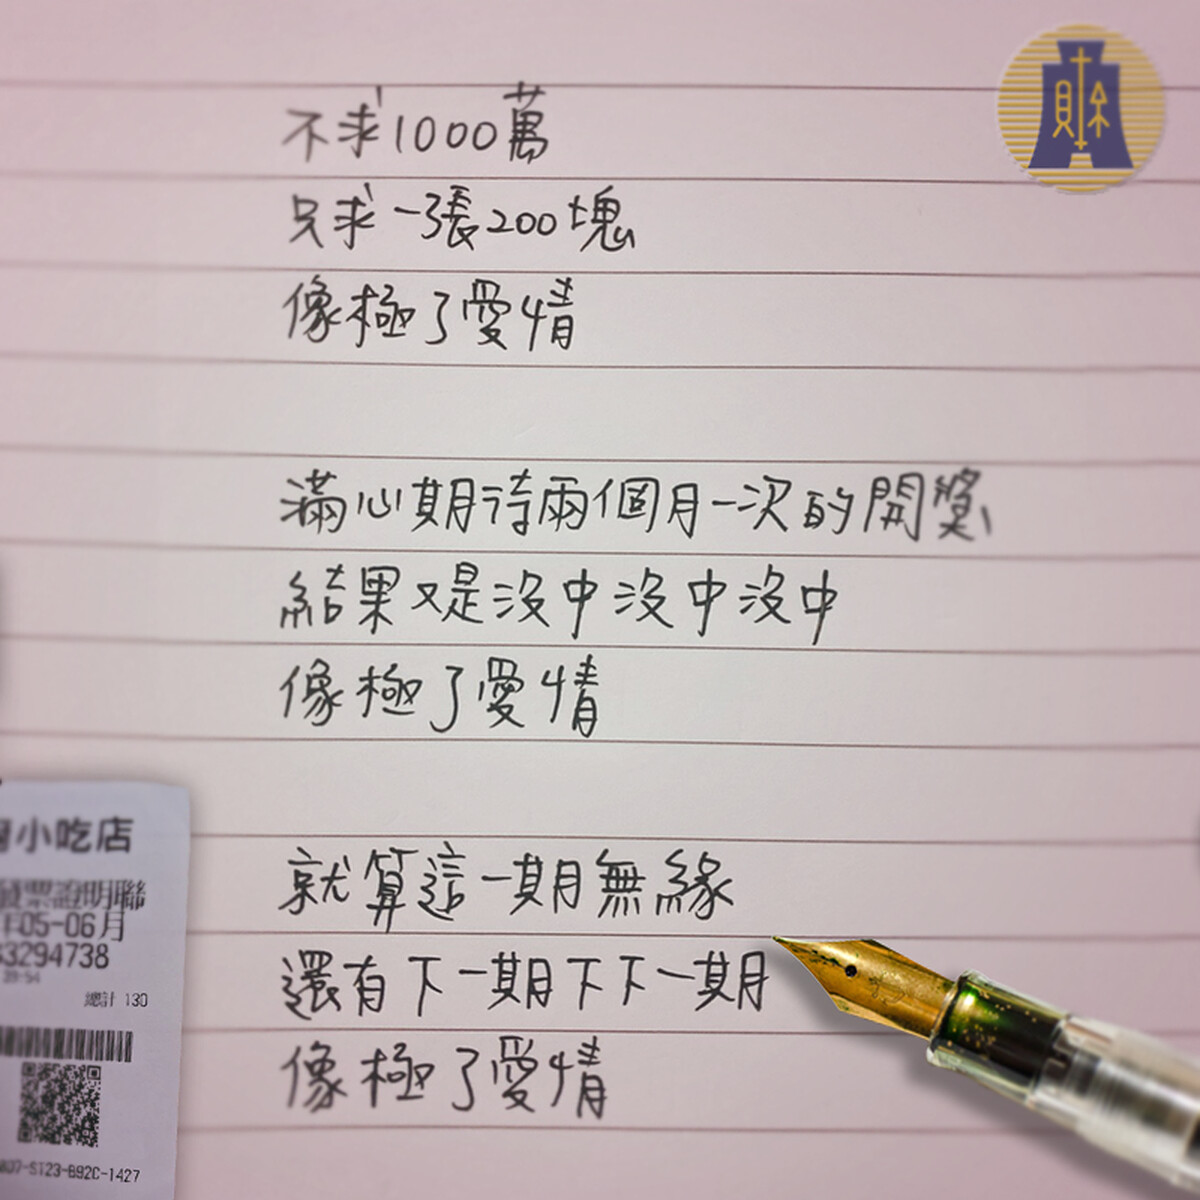 財
不求1000萬
只求一張200塊
像極了愛情
滿心期待兩個月一次的開獎
結果又是沒中沒中沒中
像極了愛情
就算這一期無緣
還有下一期下下一期
像極了愛情
小吃店
發票證明聯
年05-06月
3294738
39:54
總計 130
807-S123-B92C-1427